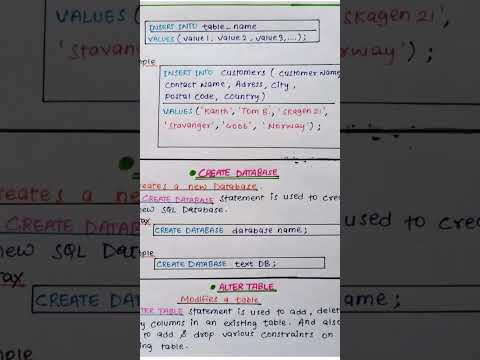 INSERT INTO table_name
VALUES (value1, value2, value3,....);
INSERT INTO customers ( customer Name,
contact Name, Adress, city,
Postal code, country)
VALUES ('Kanth', 'Tom B.', 'Skagen 21',
'Stavanger', '4006', 'Norway');
CREATE DATABASE
creates a new Database.
CREATE DATABASE statement is used to
new SQL Database.
CREATE DATABASE database name;
CREATE DATABASE text DB;
ALTER TABLE
Modifies a table
ALTER TABLE statement is used to add,
columns in an existing table. And also
to add & drop various constraints on
table.
VALUES
'Skagen 21',
'Stavanger'
Norway');
eates a ne
CREATE D
used to cre
new SQL Dat
CREATE DAT
name;